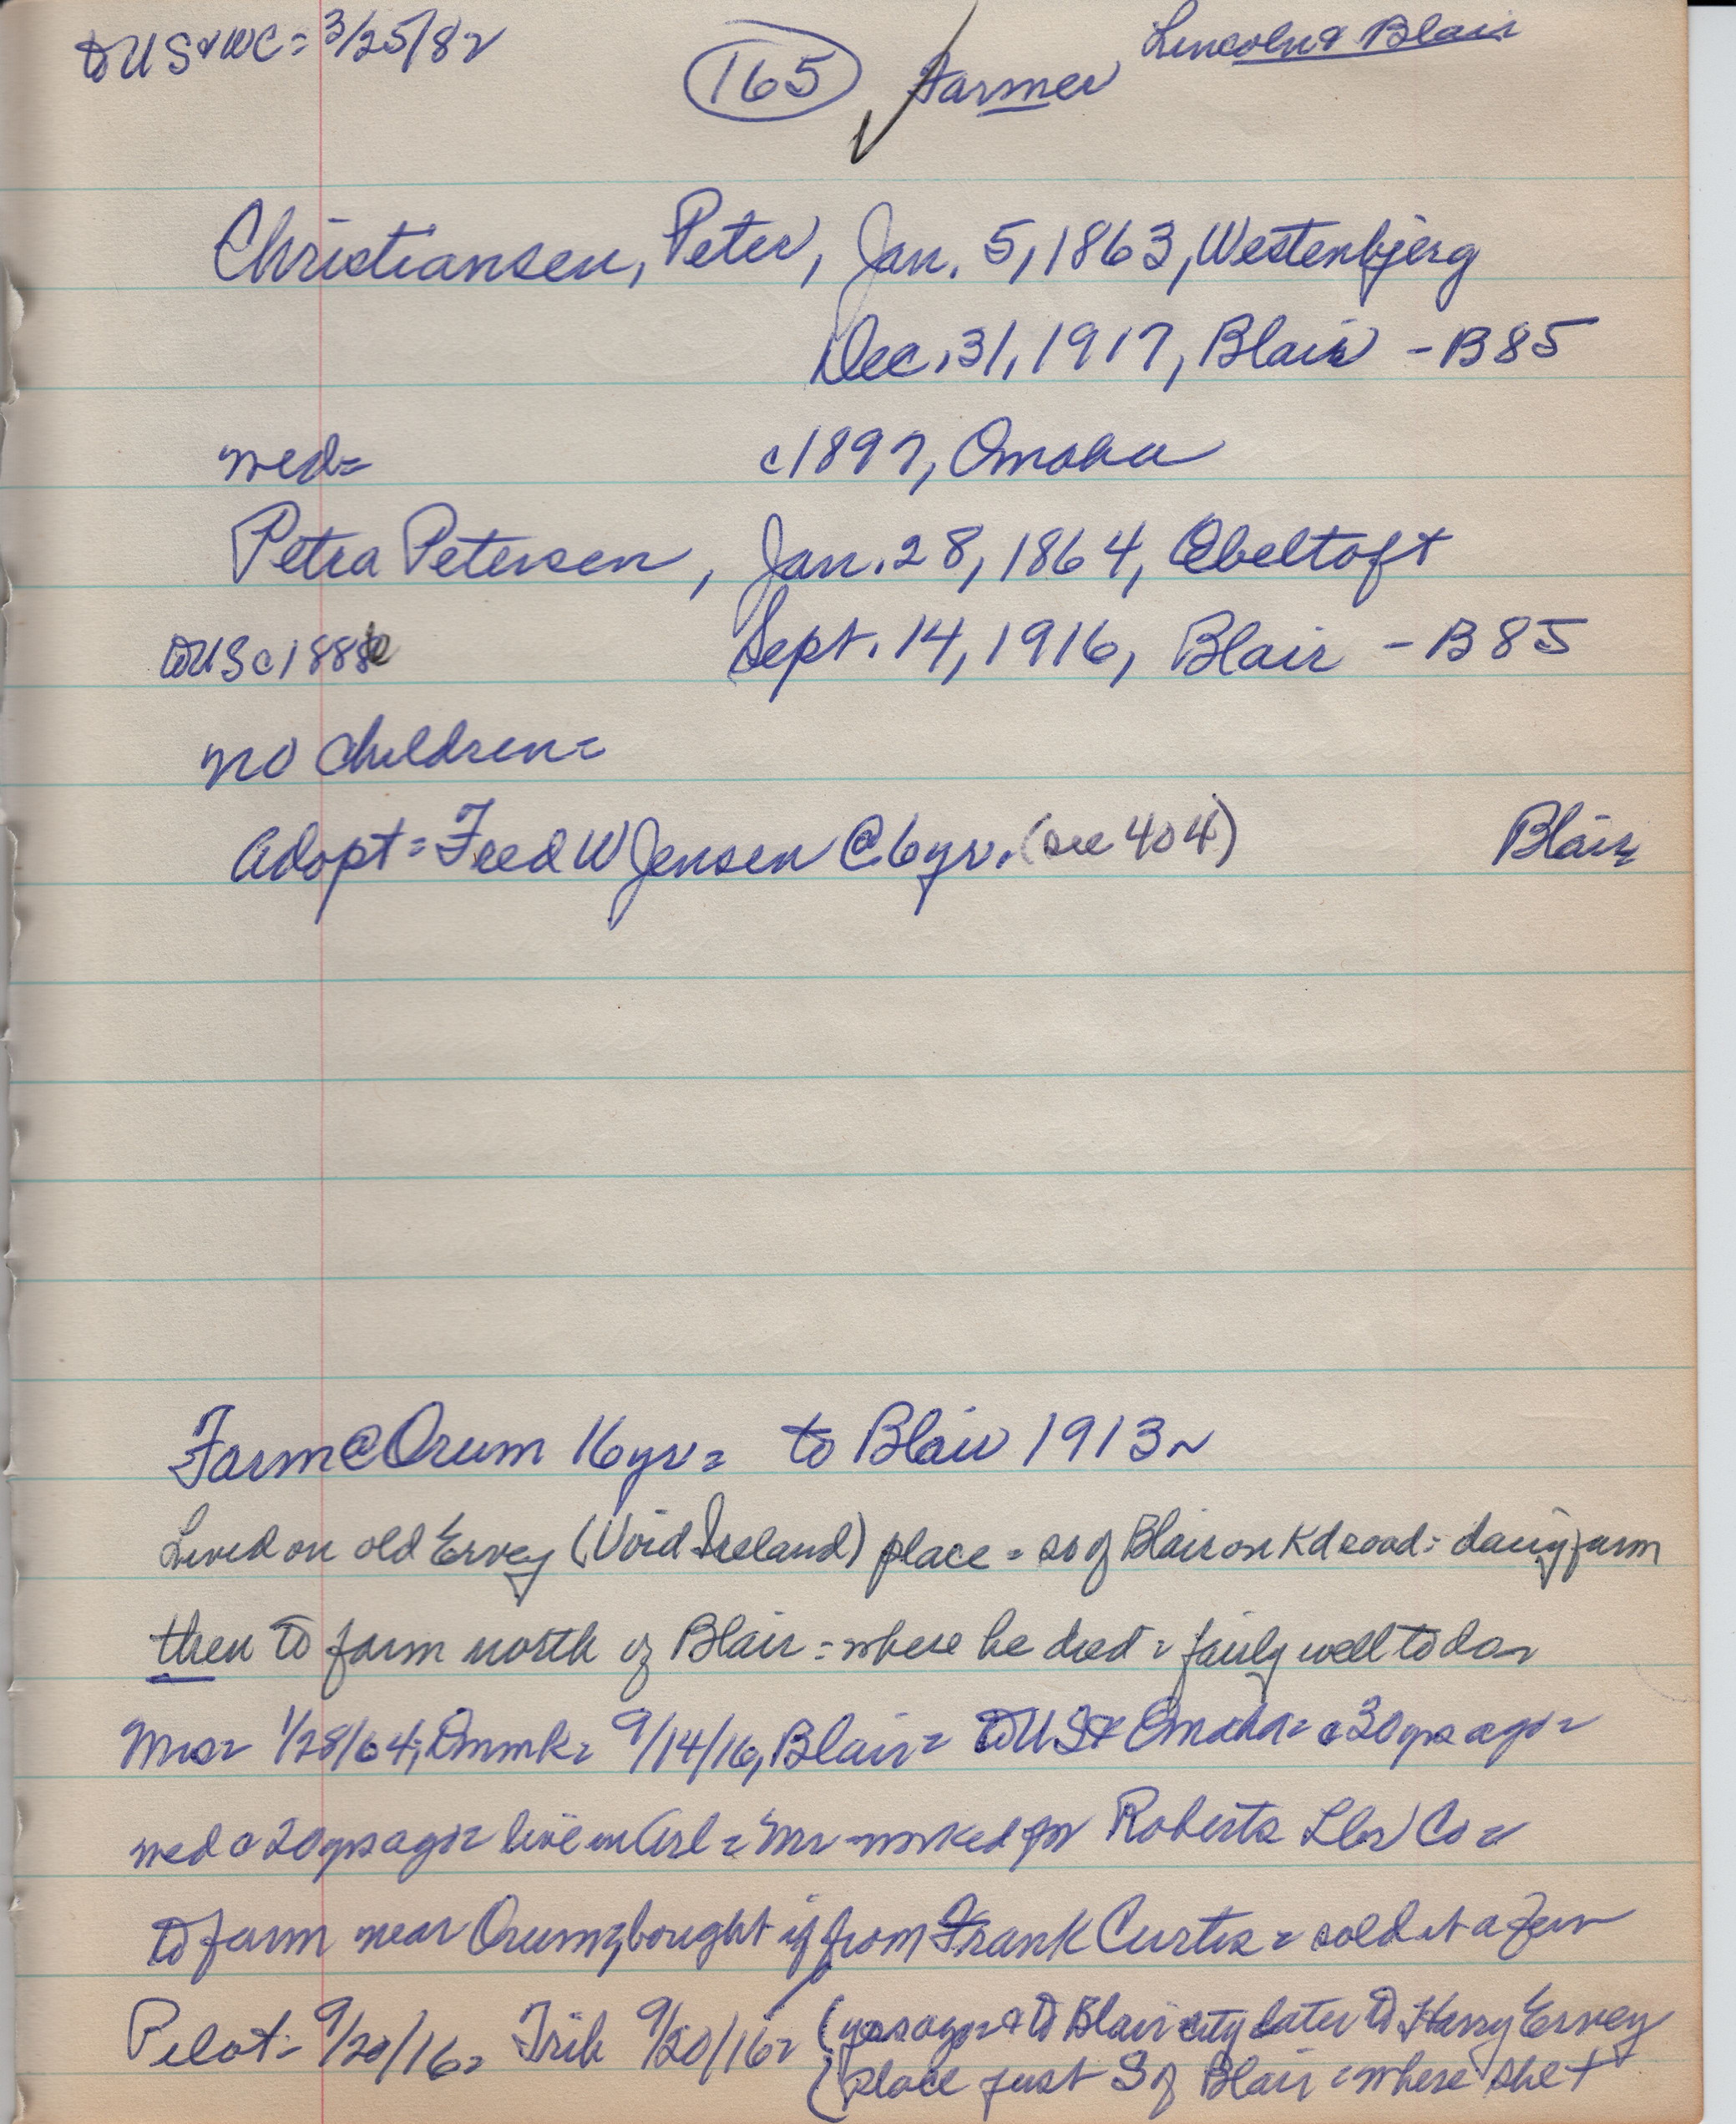 to US & WC = 3/25/82
165 Farmer Lincoln & Blair
Christiansen, Peter, Jan. 5, 1863, Westenbjerg
Dec. 31, 1917, Blair - B85
wed = c1897, Omaha
Petra Petersen, Jan. 28, 1864, Ebeltoft
to US c1886 Sept. 14, 1916, Blair - B85
no children =
Adopt = Fred W Jensen @ 6 yr. (see 404) Blair
Farm @ Orum 16 yr = to Blair 1913 ~
Lived on old Ervey (Void Ireland) place = so of Blair on Kd road = dairy farm
then to farm north of Blair = where he died = fairly well to do =
Mrs = 1/28/64, Dnmk = 9/14/16, Blair = to US & Omaha = c30 yrs ago =
wed c20 yrs ago = live in Arl = Mr worked for Roberts Lbr Co =
to farm near Orum, bought it from Frank Curtis = sold it a few
Pilot = 9/20/16 = Trib 9/20/16 = (yrs ago = & to Blair city later to Harry Ervey
(place just S of Blair = where she +